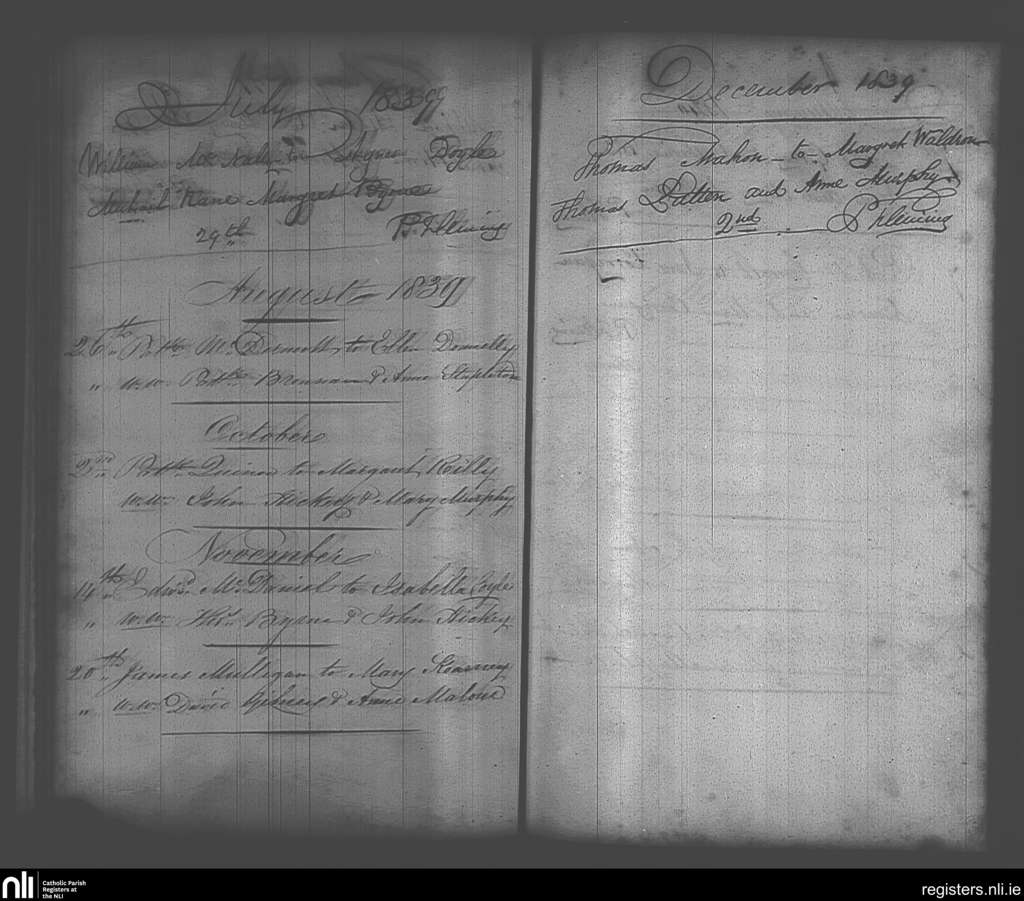 July 1839
William McNally to Doyle
Michael Kane Margret Byrne
29th P. Fleming
August 1839
26th Patk McDermott to Ellen Donnelly
" W.W. Patk Brennan & Anne Stapleton
October
Patk Quinon to Margaret Reilly
W.W. John Hickey & Mary Murphy
November
14th Edwd McDaniel to Isabella Coyle
" W.W. Thos Byrne & John Hickey
20th James Mulligan to Mary Kearney
" W.W. & Anne Malone
December 1839
Thomas Mahon to Margret Waldron
Thomas Dutten and Anne Murphy
2nd P Fleming
nli
Catholic Parish
Registers at
the NLI
registers.nli.ie